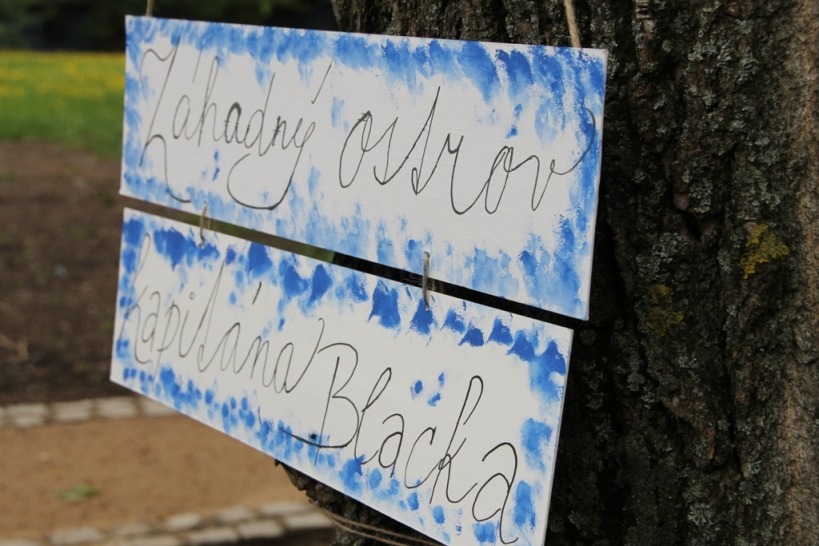 Záhadný ostrov
kapitána Blacka